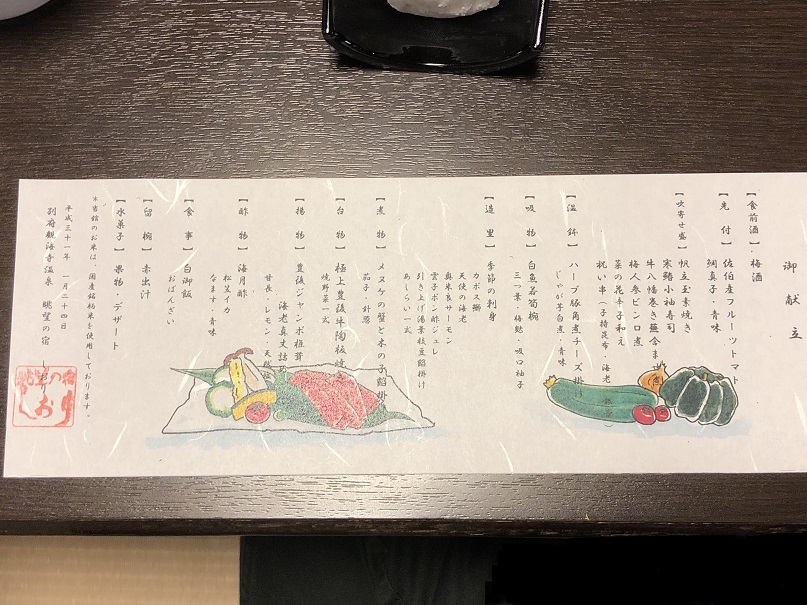 御献立
【食前酒】梅酒
【先付】佐伯産フルーツトマト
鯛真子・青味
【吹寄せ盛】帆立玉素焼き
寒鰆小袖寿司
牛八幡巻き
梅人参ピンロ煮
菜の花辛子和え
祝い串（子持昆布・海老
【温鉢】ハーブ豚角煮チーズ掛け
じゃが芋白煮・青味
【吸物】白魚若筍椀
三つ葉・梅麩・吸口柚子
【造里】季節の刺身
カボス鰤
天使の海老
奥米良サーモン
雲子ポン酢ジュレ
引き上げ湯葉枝豆餡掛け
あしらい一式
【煮物】メヌケの蟹と木の子餡掛
茄子・針葱
【台物】極上豊後牛陶板焼き
焼野菜一式
【揚物】豊後ジャンボ椎茸
海老真丈詰め
甘長・レモン・天然塩
【酢物】海月酢
松笠イカ
なます・青味
【食事】白御飯
おばんざい
【留椀】赤出汁
【水菓子】果物・デザート
※当館のお米は、国産銘柄米を使用しております。
平成三十一年 一月二十四日
別府観海寺温泉 眺望の宿 しおり